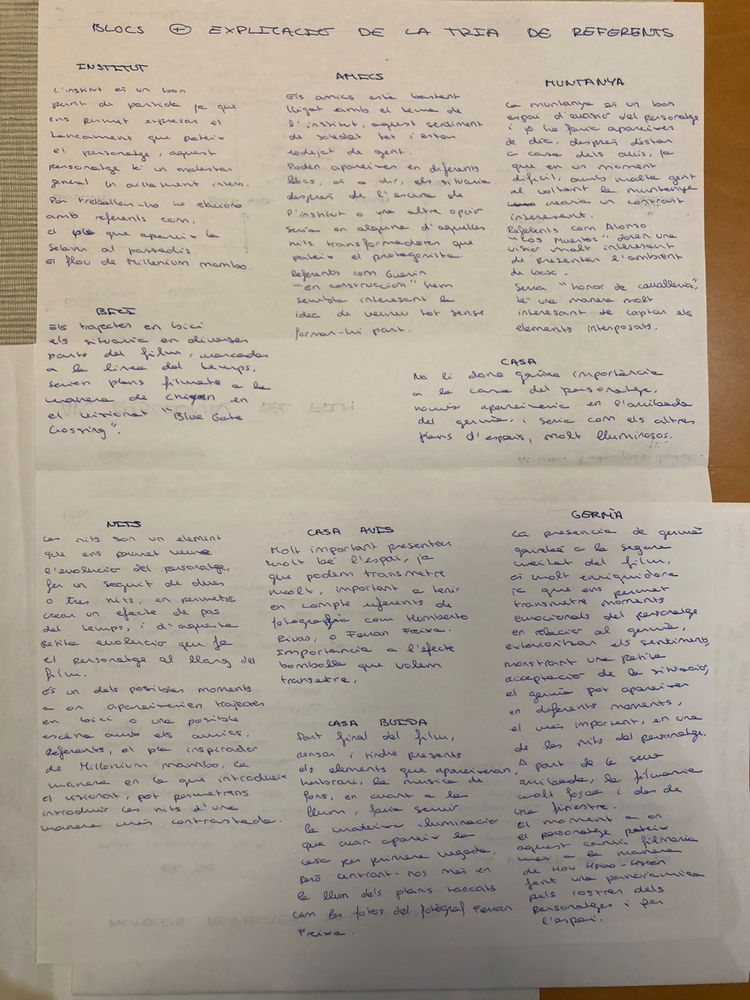 BLOCS + EXPLICACIÓ DE LA TRIA DE REFERENTS
INSTITUT
L'institut és un bon
punt de partida ja que
ens permet expresar el
tancament que pateix
el personatge, aquest
personatge té un malestar
general un aillament intern.
amb referents com,
el pla que apareix la
al passadís.
el flou de Millenium mambo.
BICI
Els trajectes en bici
els situaria en diverses
parts del film, marcades
a la línea del temps,
serien plans filmats a la
manera de en
el visionat "Blue Gate
Crossing".
AMICS
Els amics està bastant
lligat amb el tema de
l'institut, aquest sentiment
de soledat tot i estar
rodejat de gent.
Poden apareixer en diferents
llocs, és a dir, els situaria
després de l'escena de
l'institut o una altre opció
seria en alguna d'aquelles
nits transformadores que
pateix el protagonista.
Referents com Guerin
"en construcción" hem
sembla interesant la
idea de veureu tot sense
formar-hi part.
MUNTANYA
La muntanya és un bon
espai d'evasió del personatge
i jo ho faria apareixer
de dia, després d'estar
a casa dels avis, ja
que en un moment
difícil, amb molta gent
al voltant la muntanya
crearia un contrast
interesant.
Referents com Alonso
"Los Muertos" donen una
visió molt interesant
de presentar l'ambient
de bosc.
Serra "honor de cavalleria",
té una manera molt
interesant de captar els
elements interposats.
CASA
No li dono gaire importància
a la casa del personatge,
només apareixeria en l'arribada
del germà, i seria com els altres
plans d'espais, molt lluminosos.
NITS
Les nits son un element
que ens permet veure
l'evolució del personatge,
fer un seguit de dues
o tres nits, en permetria
crear un efecte de pas
del temps, i d'aquesta
petita evolució que fa
el personatge al llarg del
film.
És un dels possibles moments
a on apareixerien trajectes
en bici o una posible
escena amb els amics.
Referents, el pla inspirador
de Millenium mambo, la
manera en la que introdueix
el visionat, pot permetrens
introduir les nits d'una
manera més contrastada.
CASA AVIS
Molt important presentar
molt bé l'espai, ja
que podem transmetre
molt, important a tenir
en compte referents de
fotografia com Humberto
Rivas, o Ferran Freixa.
Importancia a l'efecte
bombolla que volem
transetre.
CASA BUIDA
Part final del film,
pensar i tindre presents
els elements que apareixeran,
l'arbrari, la musica de
fons, en quant a la
llum, faria servir
la mateixa iluminació
que quan apareix la
casa per primera vegada,
però centrant-nos més en
la llum dels plans tancats
com les fotos del fotógraf Ferran
Freixa.
GERMÀ
La presencia de germà
a la segona
meitat del film,
és molt enriquidora
ja que ens permet
transmetre moments
emocionals del personatge
en relació al germà,
exterioritzar els sentiments,
mostrant una petita
acceptació de la situació,
el germà pot apareixer
en diferents moments,
el més important, en una
de les nits del personatge.
A part de la seva
arribada, la filmaria
molt fosca i des de
una finestre.
El moment a on
el personatge pateix
aquest canvi filmaria
més a la manera
de Hou Hsiao-Hsien
fent una panoràmica
pels rostres dels
personatges i per
l'espai.